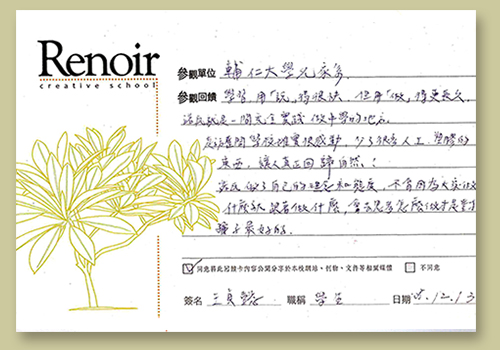 Renoir
creative school
參觀單位 輔仁大學兒家系
參觀回饋 學習用「玩」得很快,但用「做」得更長久,
就是一間完全實踐做中學的地方。
這間學校確實很感動,少了很多人工、塑膠的
東西,讓人真正回歸自然!
做了自己的理念和態度,不會因為大家
什麼就跟著做什麼,會去思考怎麼做才是對
孩子最好的。
同意將此回饋卡內容公開分享於本校網站、刊物、文件等相關媒體 不同意
簽名 王貞 職稱 學生 日期 12.13